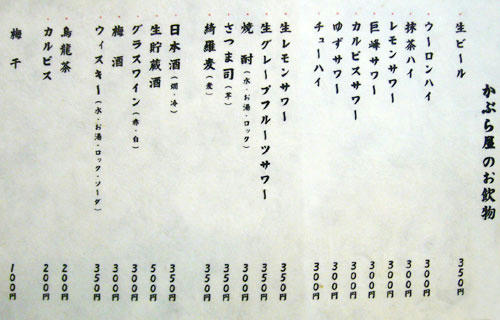 かぶら屋のお飲物
生ビール 350円
ウーロンハイ 300円
抹茶ハイ 300円
レモンサワー 300円
巨峰サワー 300円
カルピスサワー 300円
ゆずサワー 300円
チューハイ 300円
生レモンサワー 350円
生グレープフルーツサワー 350円
焼酎(水・お湯・ロック) 300円
さつま司(芋) 350円
綺羅麦(麦) 350円
日本酒(燗・冷) 350円
生貯蔵酒 500円
グラスワイン(赤・白) 300円
梅酒 300円
ウィスキー(水・お湯・ロック・ソーダ) 350円
烏龍茶 200円
カルピス 200円
梅干 100円